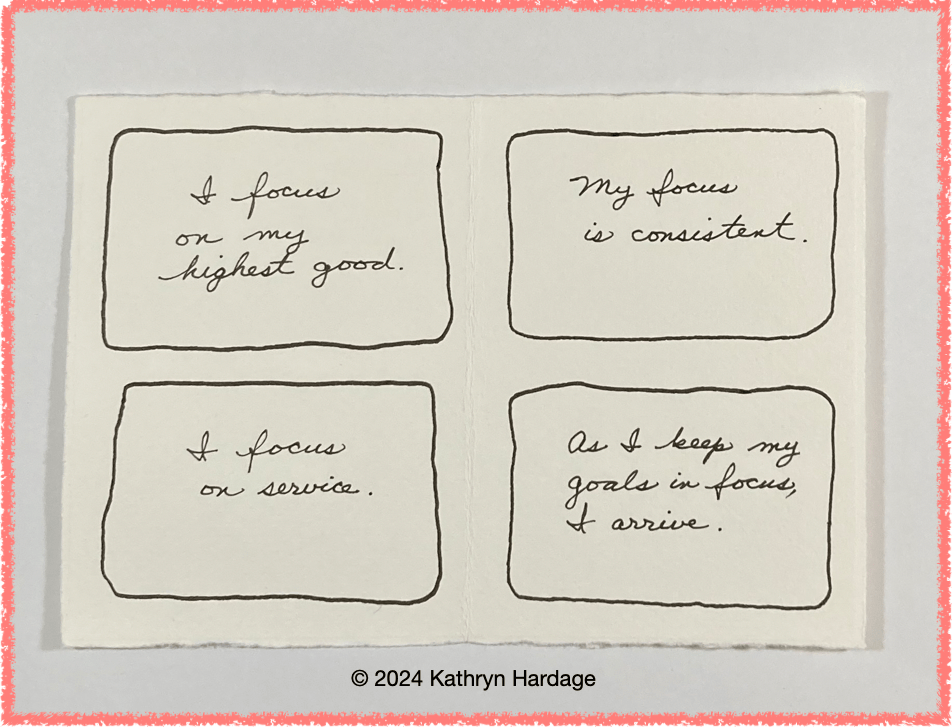 I focus
on my
highest good.
I focus
on service.
My focus
is consistent.
As I keep my
goals in focus,
I arrive.
© 2024 Kathryn Hardage